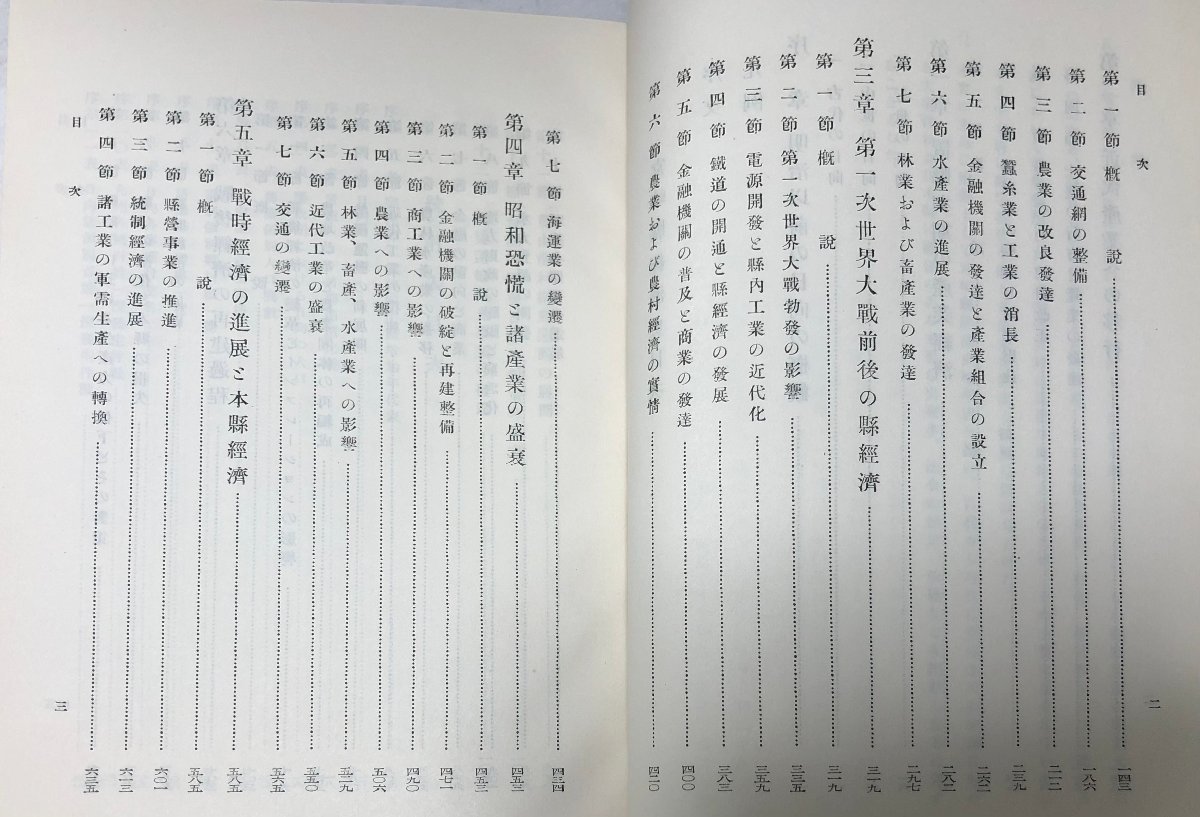 目次
第一節 概説 一四三
第二節 交通網の整備 一八六
第三節 農業の改良發達 二一二
第四節 蠶糸業と工業の消長 二三九
第五節 金融機關の發達と產業組合の設立 二六二
第六節 水產業の進展 二八二
第七節 林業および畜產業の發達 二九七
第三章 第一次世界大戰前後の縣經濟 三一九
第一節 概説 三一九
第二節 第一次世界大戰勃發の影響 三三五
第三節 電源開發と縣內工業の近代化 三五九
第四節 鐵道の開通と縣經濟の發展 三八三
第五節 金融機關の普及と商業の發達 四〇〇
第六節 農業および農村經濟の實情 四二〇
二
第七節 海運業の變遷 四三四
第四章 昭和恐慌と諸產業の盛衰 四五三
第一節 概説 四五三
第二節 金融機關の破綻と再建整備 四七一
第三節 商工業への影響 四九〇
第四節 農業への影響 五〇六
第五節 林業、畜產、水產業への影響 五二九
第六節 近代工業の盛衰 五五〇
第七節 交通の變遷 五六五
第五章 戰時經濟の進展と本縣經濟 五八五
第一節 概説 五八五
第二節 縣營事業の推進 六〇一
第三節 統制經濟の進展 六一三
第四節 諸工業の軍需生產への轉換 六三五
目次
三